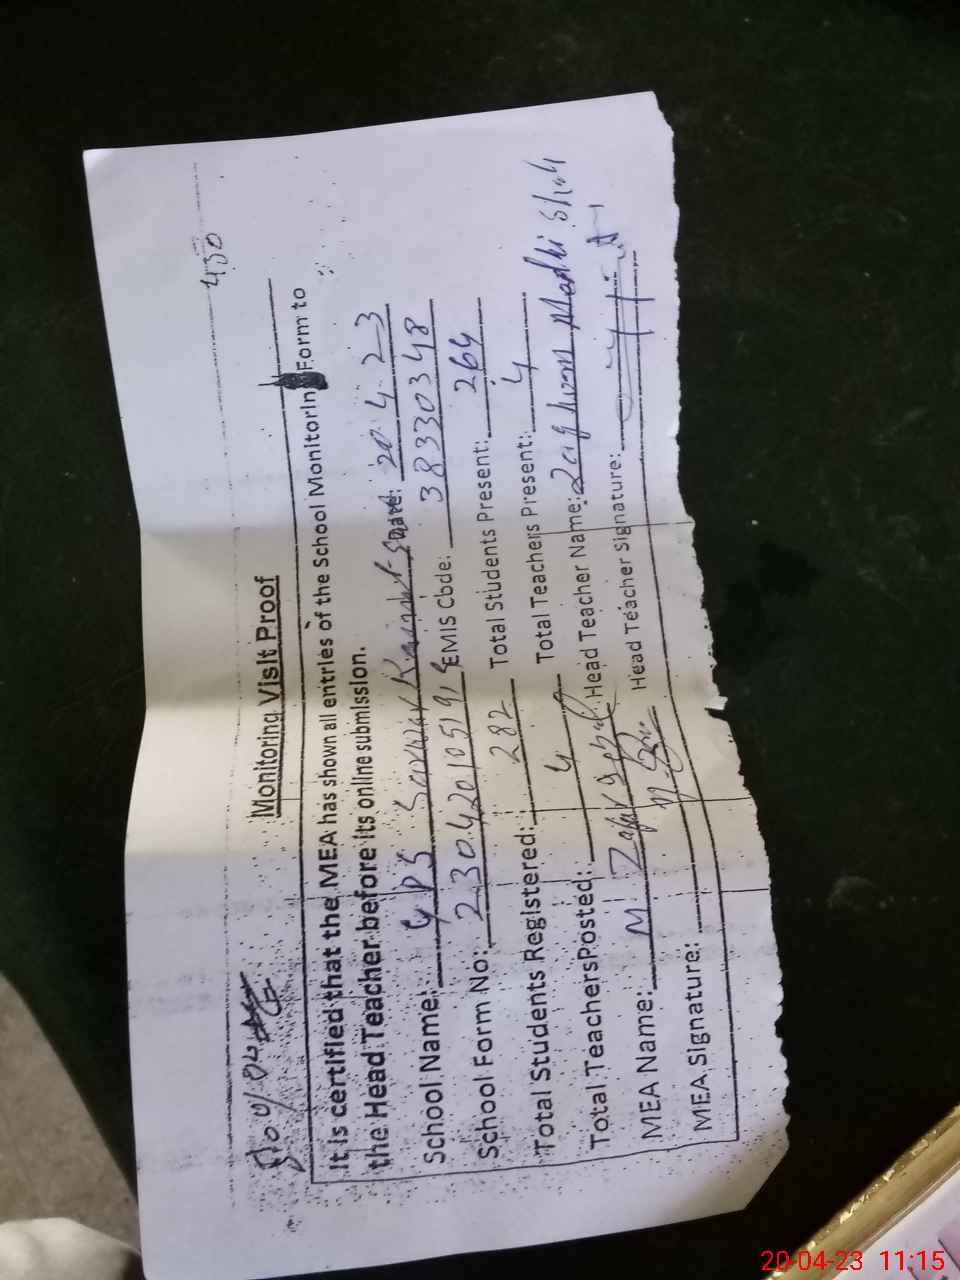 430
Monitoring Visit Proof
It is certified that the MEA has shown all entries of the School Monitorin Form to
the Head Teacher before its online submission.
School Name: GPS Date: 20.4.23
School Form No: EMIS Code: 38330348
Total Students Registered: 282 Total Students Present: 264
Total Teachers Posted: 4 Total Teachers Present: 4
MEA Name: M. Zafar Head Teacher Name: Shah
MEA Signature: Head Teacher Signature:
20-04-23 11:15